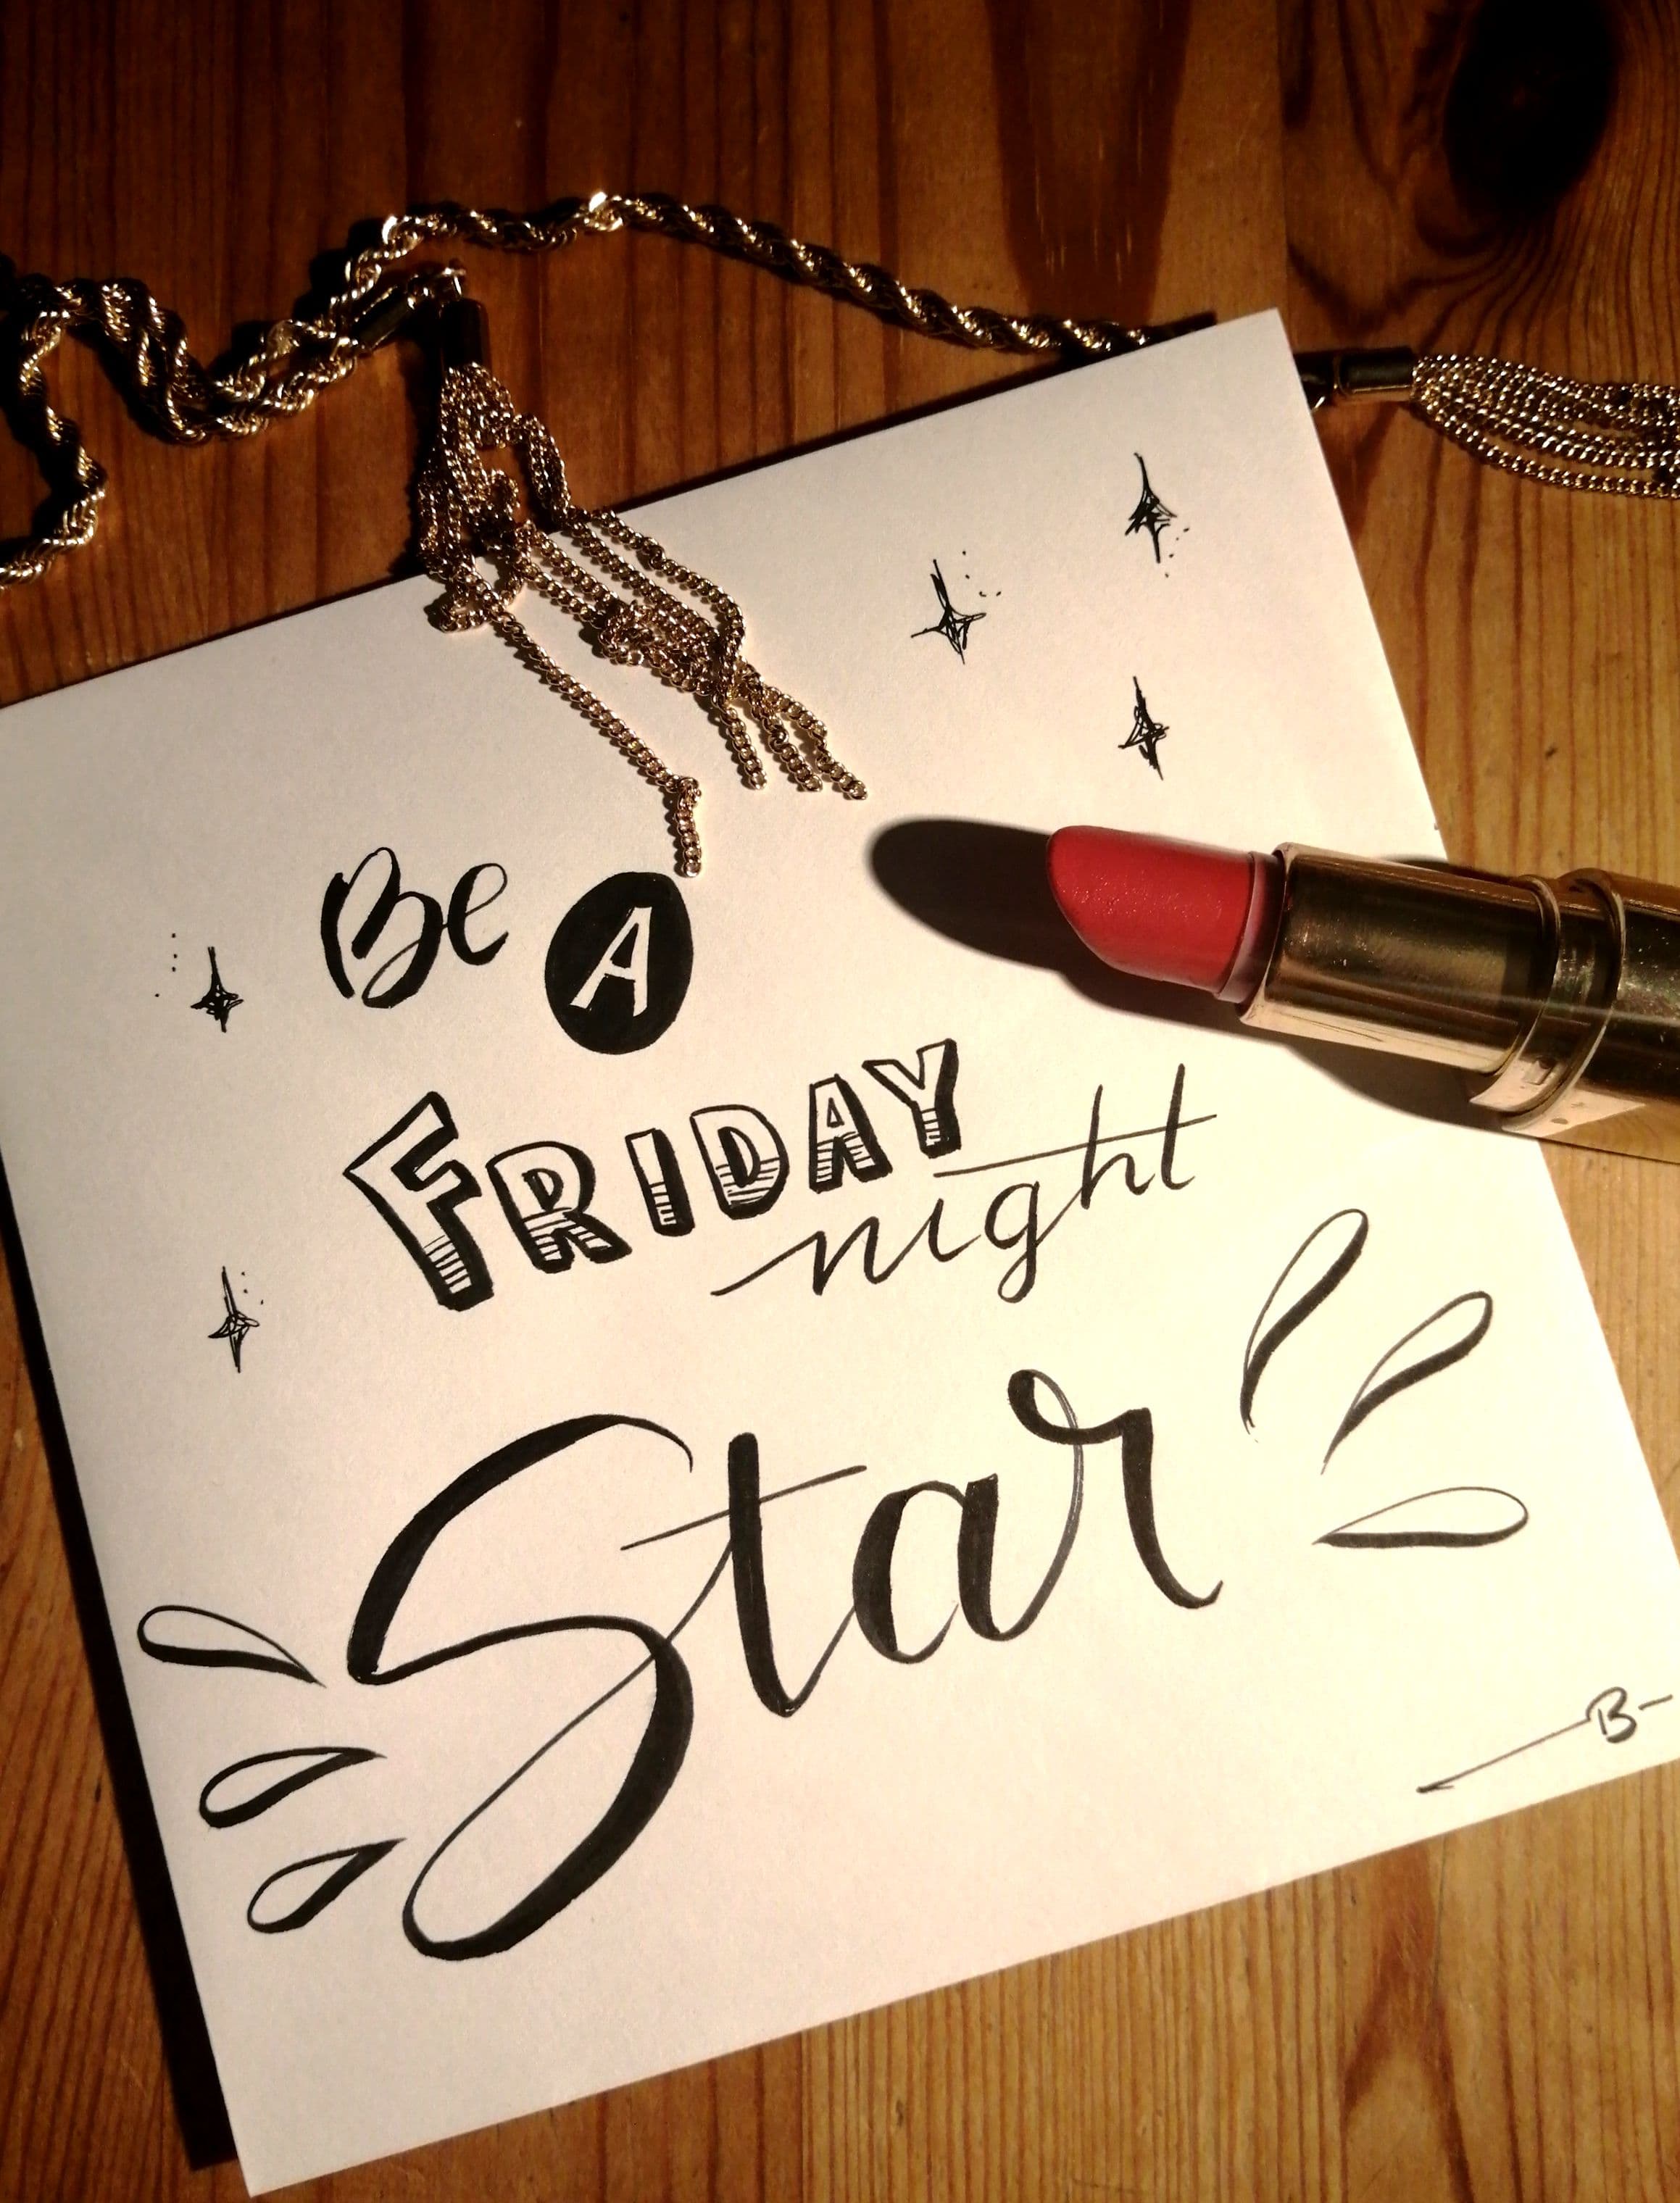 Be A
FRIDAY
night
Star
B